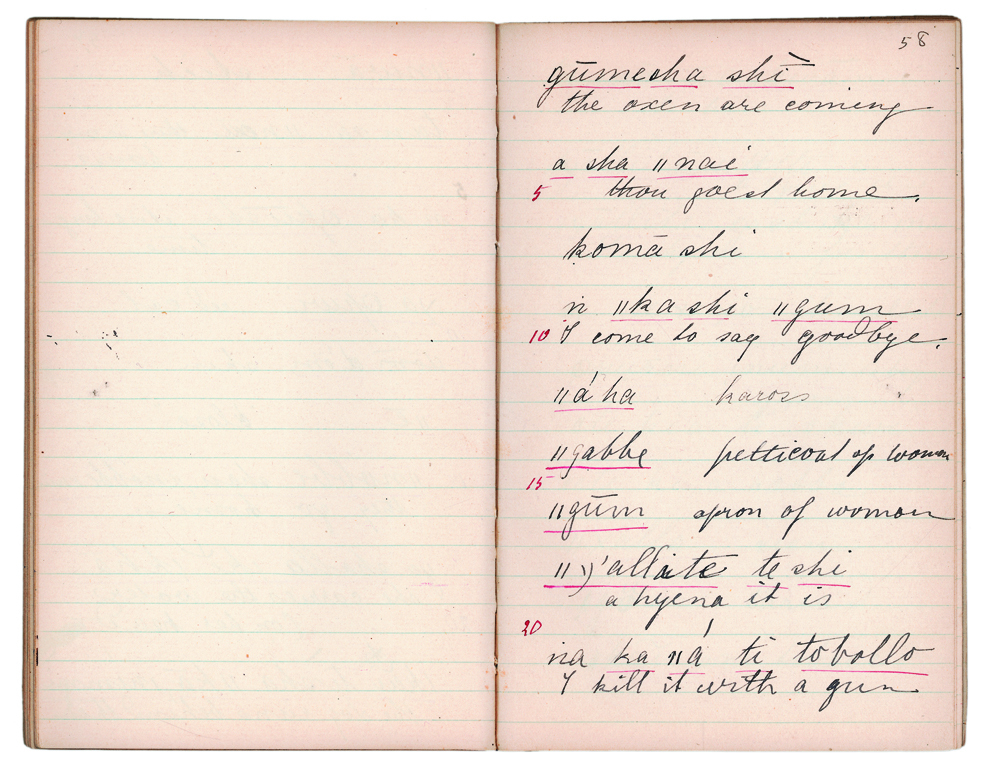 58
gūmecha shì
the oxen are coming
a sha ǁnaé
5 thou goest home.
komā shi
n ǁka shi ǁgum
10 I come to say goodbye.
ǁá ha karoos
ǁgabbe petticoat of woman
15
ǁgūm apron of woman
te shi
a hyena it is
20
na ka ǁá ti tobollo
I kill it with a gun